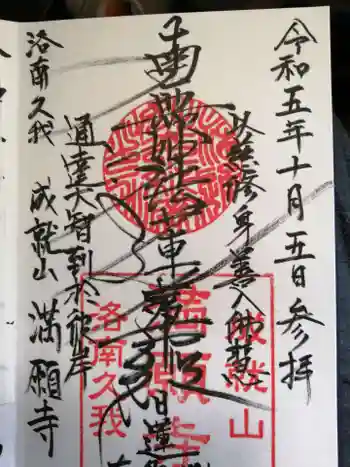 令和五年十月五日参拝
以慈修身善入佛慧
南無妙法蓮華経 日蓮
通達大智到於彼岸
洛南久我 成就山 満願寺
成就山
満願寺
洛南久我